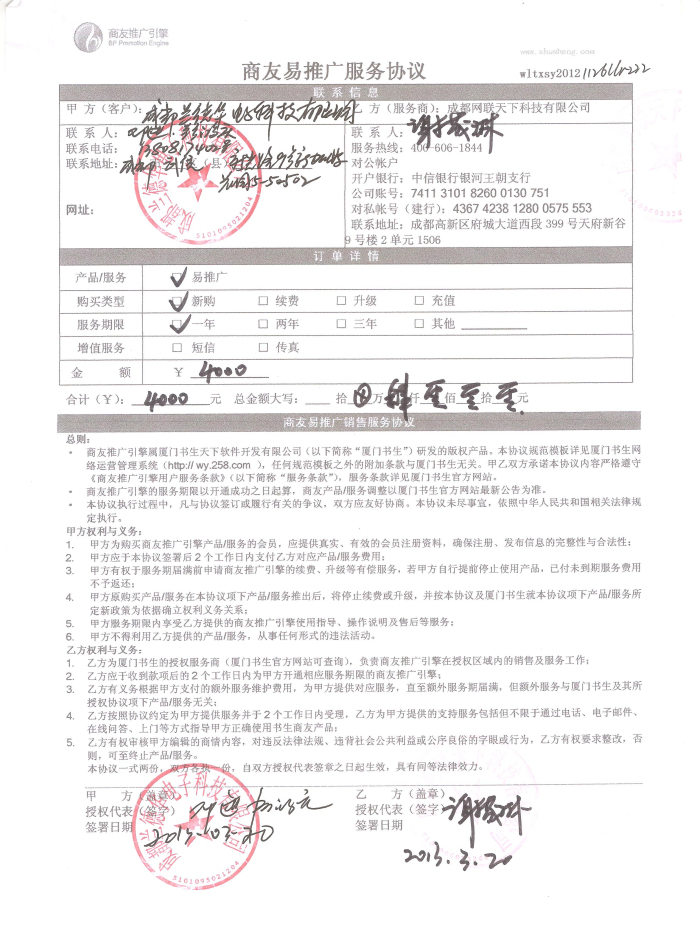 商友推广引擎
BP Promotion Engine
商友易推广服务协议
联系信息
甲 方（客户）：
乙 方（服务商）：成都网联天下科技有限公司
联 系 人：
联 系 人：
联系电话：
服务热线：400-606-1844
联系地址：
对公帐户
开户银行：中信银行银河王朝支行
公司账号：7411 3101 8260 0130 751
网址：
对私帐号（建行）：4367 4238 1280 0575 553
联系地址：成都高新区府城大道西段 399 号天府新谷
9 号楼 2 单元 1506
5101095021204
订 单 详 情
产品/服务 ☑ 易推广
购买类型 ☑ 新购 □ 续费 □ 升级 □ 充值
服务期限 ☑ 一年 □ 两年 □ 三年 □ 其他
增值服务 □ 短信 □ 传真
金 额 ￥ 4000
合计（￥）: 4000 元 总金额大写：
商友易推广销售服务协议
总则：
• 商友推广引擎属厦门书生天下软件开发有限公司（以下简称“厦门书生”）研发的版权产品。本协议规范模板详见厦门书生网
络运营管理系统（http:// wy.258.com ），任何规范模板之外的附加条款与厦门书生无关。甲乙双方承诺本协议内容严格遵守
《商友推广引擎用户服务条款》（以下简称“服务条款”），服务条款详见厦门书生官方网站。
• 商友推广引擎的服务期限以开通成功之日起算，商友产品/服务调整以厦门书生官方网站最新公告为准。
• 本协议执行过程中，凡与协议签订或履行有关的争议，双方应友好协商。本协议未尽事宜，依照中华人民共和国相关法律规
定执行。
甲方权利与义务：
1. 甲方为购买商友推广引擎产品/服务的会员，应提供真实、有效的会员注册资料，确保注册、发布信息的完整性与合法性；
2. 甲方应于本协议签署后 2 个工作日内支付乙方对应产品/服务费用；
3. 甲方有权于服务期届满前申请商友推广引擎的续费、升级等有偿服务，若甲方自行提前停止使用产品，已付未到期服务费用
不予返还；
4. 甲方原购买产品/服务在本协议项下产品/服务推出后，将停止续费或升级，并按本协议及厦门书生就本协议项下产品/服务所
定新政策为依据确立权利义务关系；
5. 甲方服务期限内享受乙方提供的商友推广引擎使用指导、操作说明及售后等服务；
6. 甲方不得利用乙方提供的产品/服务，从事任何形式的违法活动。
乙方权利与义务：
1. 乙方为厦门书生的授权服务商（厦门书生官方网站可查询），负责商友推广引擎在授权区域内的销售及服务工作；
2. 乙方应于收到款项后的 2 个工作日内为甲方开通相应服务期限的商友推广引擎；
3. 乙方有义务根据甲方支付的额外服务维护费用，为甲方提供对应服务，直至额外服务期届满，但额外服务与厦门书生及其所
授权协议项下产品/服务无关；
4. 乙方按照协议约定为甲方提供服务并于 2 个工作日内受理，乙方为甲方提供的支持服务包括但不限于通过电话、电子邮件、
在线问答、上门等方式指导甲方正确使用书生商友产品；
5. 乙方有权审核甲方编辑的商情内容，对违反法律法规、违背社会公共利益或公序良俗的字眼或行为，乙方有权要求整改，否
则，可至终止产品/服务。
本协议一式两份，双方各执一份，自双方授权代表签章之日起生效，具有同等法律效力。
甲 方（盖章）
乙 方（盖章）
授权代表（签字）
授权代表（签字）
签署日期
签署日期 2013.3.20
5101095021204